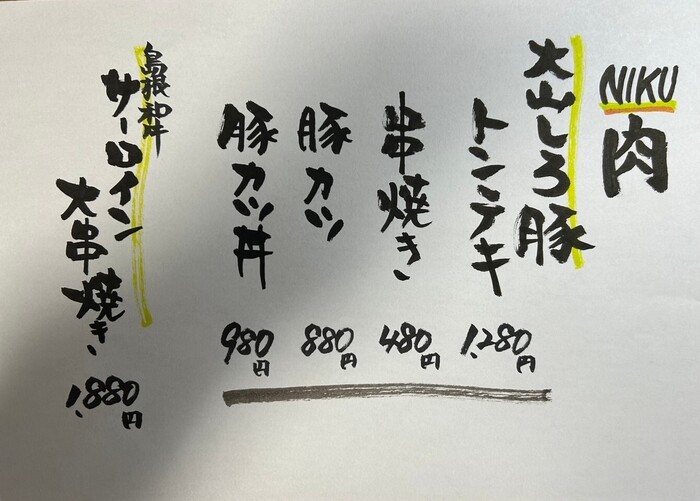 NIKU
肉
大山しろ豚
トンテキ
1,280円
串焼き
480円
豚カツ
880円
豚カツ丼
980円
島根和牛
サーロイン
大串焼き
1,880円